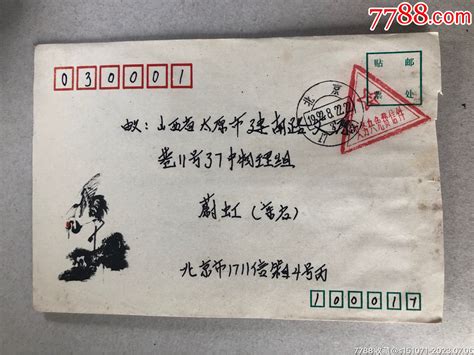 7788.com
030001
贴 邮
票 处
北京
1992.8.22.22
义务兵免费信件
邮：山西省太原市建南路
巷11号37中物理组
蔚虹（高宏）
北京市1711信箱4号丙
100017
7788收藏@s151071-2023.07.0